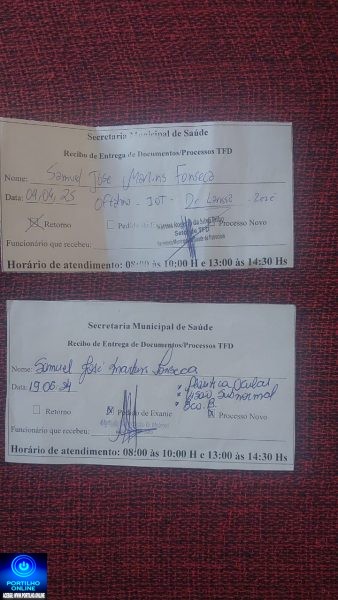 Secretaria Municipal de Saúde
Recibo de Entrega de Documentos/Processos TFD
Nome: Samuel José Martins Fonseca
Data: 04.04.25 Oftalmo - IOT - De Lansa
Retorno Pedido Processo Novo
Setor de TFD
Funcionário que recebeu:
Horário de atendimento: 08:00 às 10:00 H e 13:00 às 14:30 Hs
Secretaria Municipal de Saúde
Recibo de Entrega de Documentos/Processos TFD
Nome: Samuel José Martins Fonseca
Data: 19.06.24 * Prótese Ocular
* Visão Subnormal
* Eco. B.
Retorno Pedido de Exame Processo Novo
Funcionário que recebeu:
Horário de atendimento: 08:00 às 10:00 H e 13:00 às 14:30 Hs
PORTILHO
ONLINE
ACESSE: WWW.PORTILHO.ONLINE